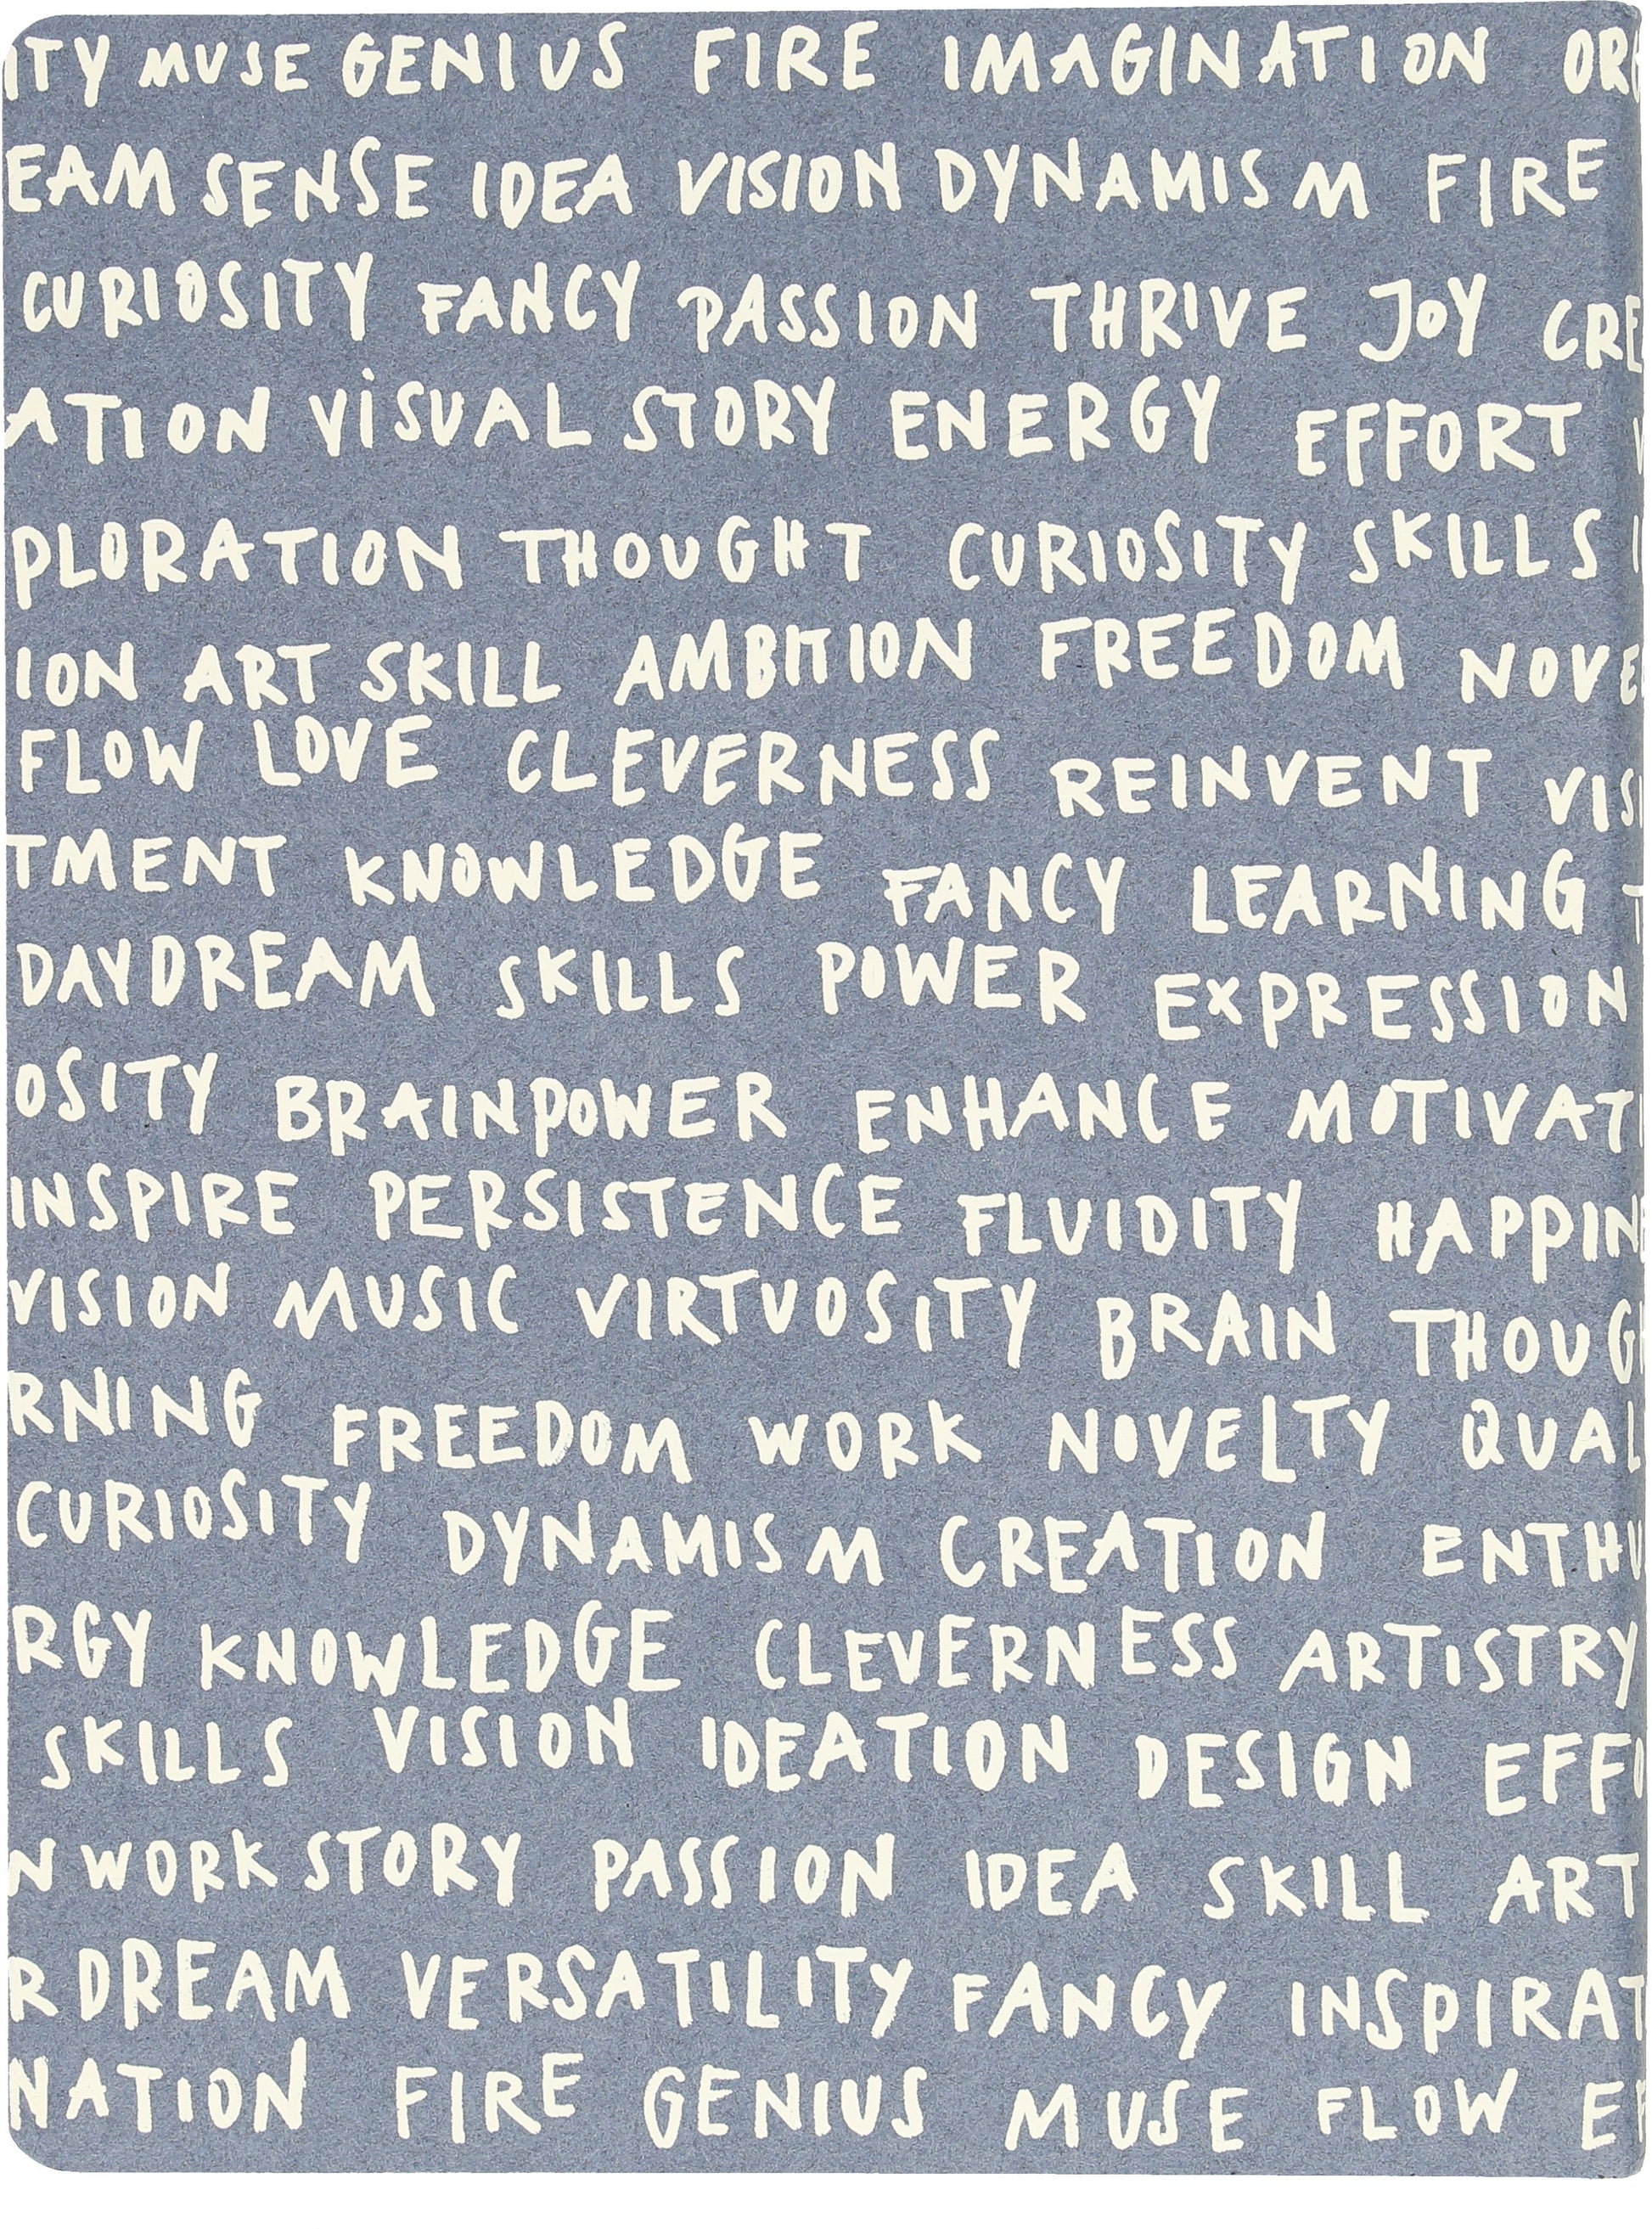 ITY MUSE GENIUS FIRE IMAGINATION OR
EAM SENSE IDEA VISION DYNAMISM FIRE
CURIOSITY FANCY PASSION THRIVE JOY CRE
ATION VISUAL STORY ENERGY EFFORT
PLORATION THOUGHT CURIOSITY SKILLS
ION ART SKILL AMBITION FREEDOM NOVE
FLOW LOVE CLEVERNESS REINVENT VIS
TMENT KNOWLEDGE FANCY LEARNING
DAYDREAM SKILLS POWER EXPRESSION
OSITY BRAINPOWER ENHANCE MOTIVAT
INSPIRE PERSISTENCE FLUIDITY HAPPIN
VISION MUSIC VIRTUOSITY BRAIN THOUG
RNING FREEDOM WORK NOVELTY QUAL
CURIOSITY DYNAMISM CREATION ENTHU
RGY KNOWLEDGE CLEVERNESS ARTISTRY
SKILLS VISION IDEATION DESIGN EFFO
N WORK STORY PASSION IDEA SKILL ART
R DREAM VERSATILITY FANCY INSPIRAT
NATION FIRE GENIUS MUSE FLOW E